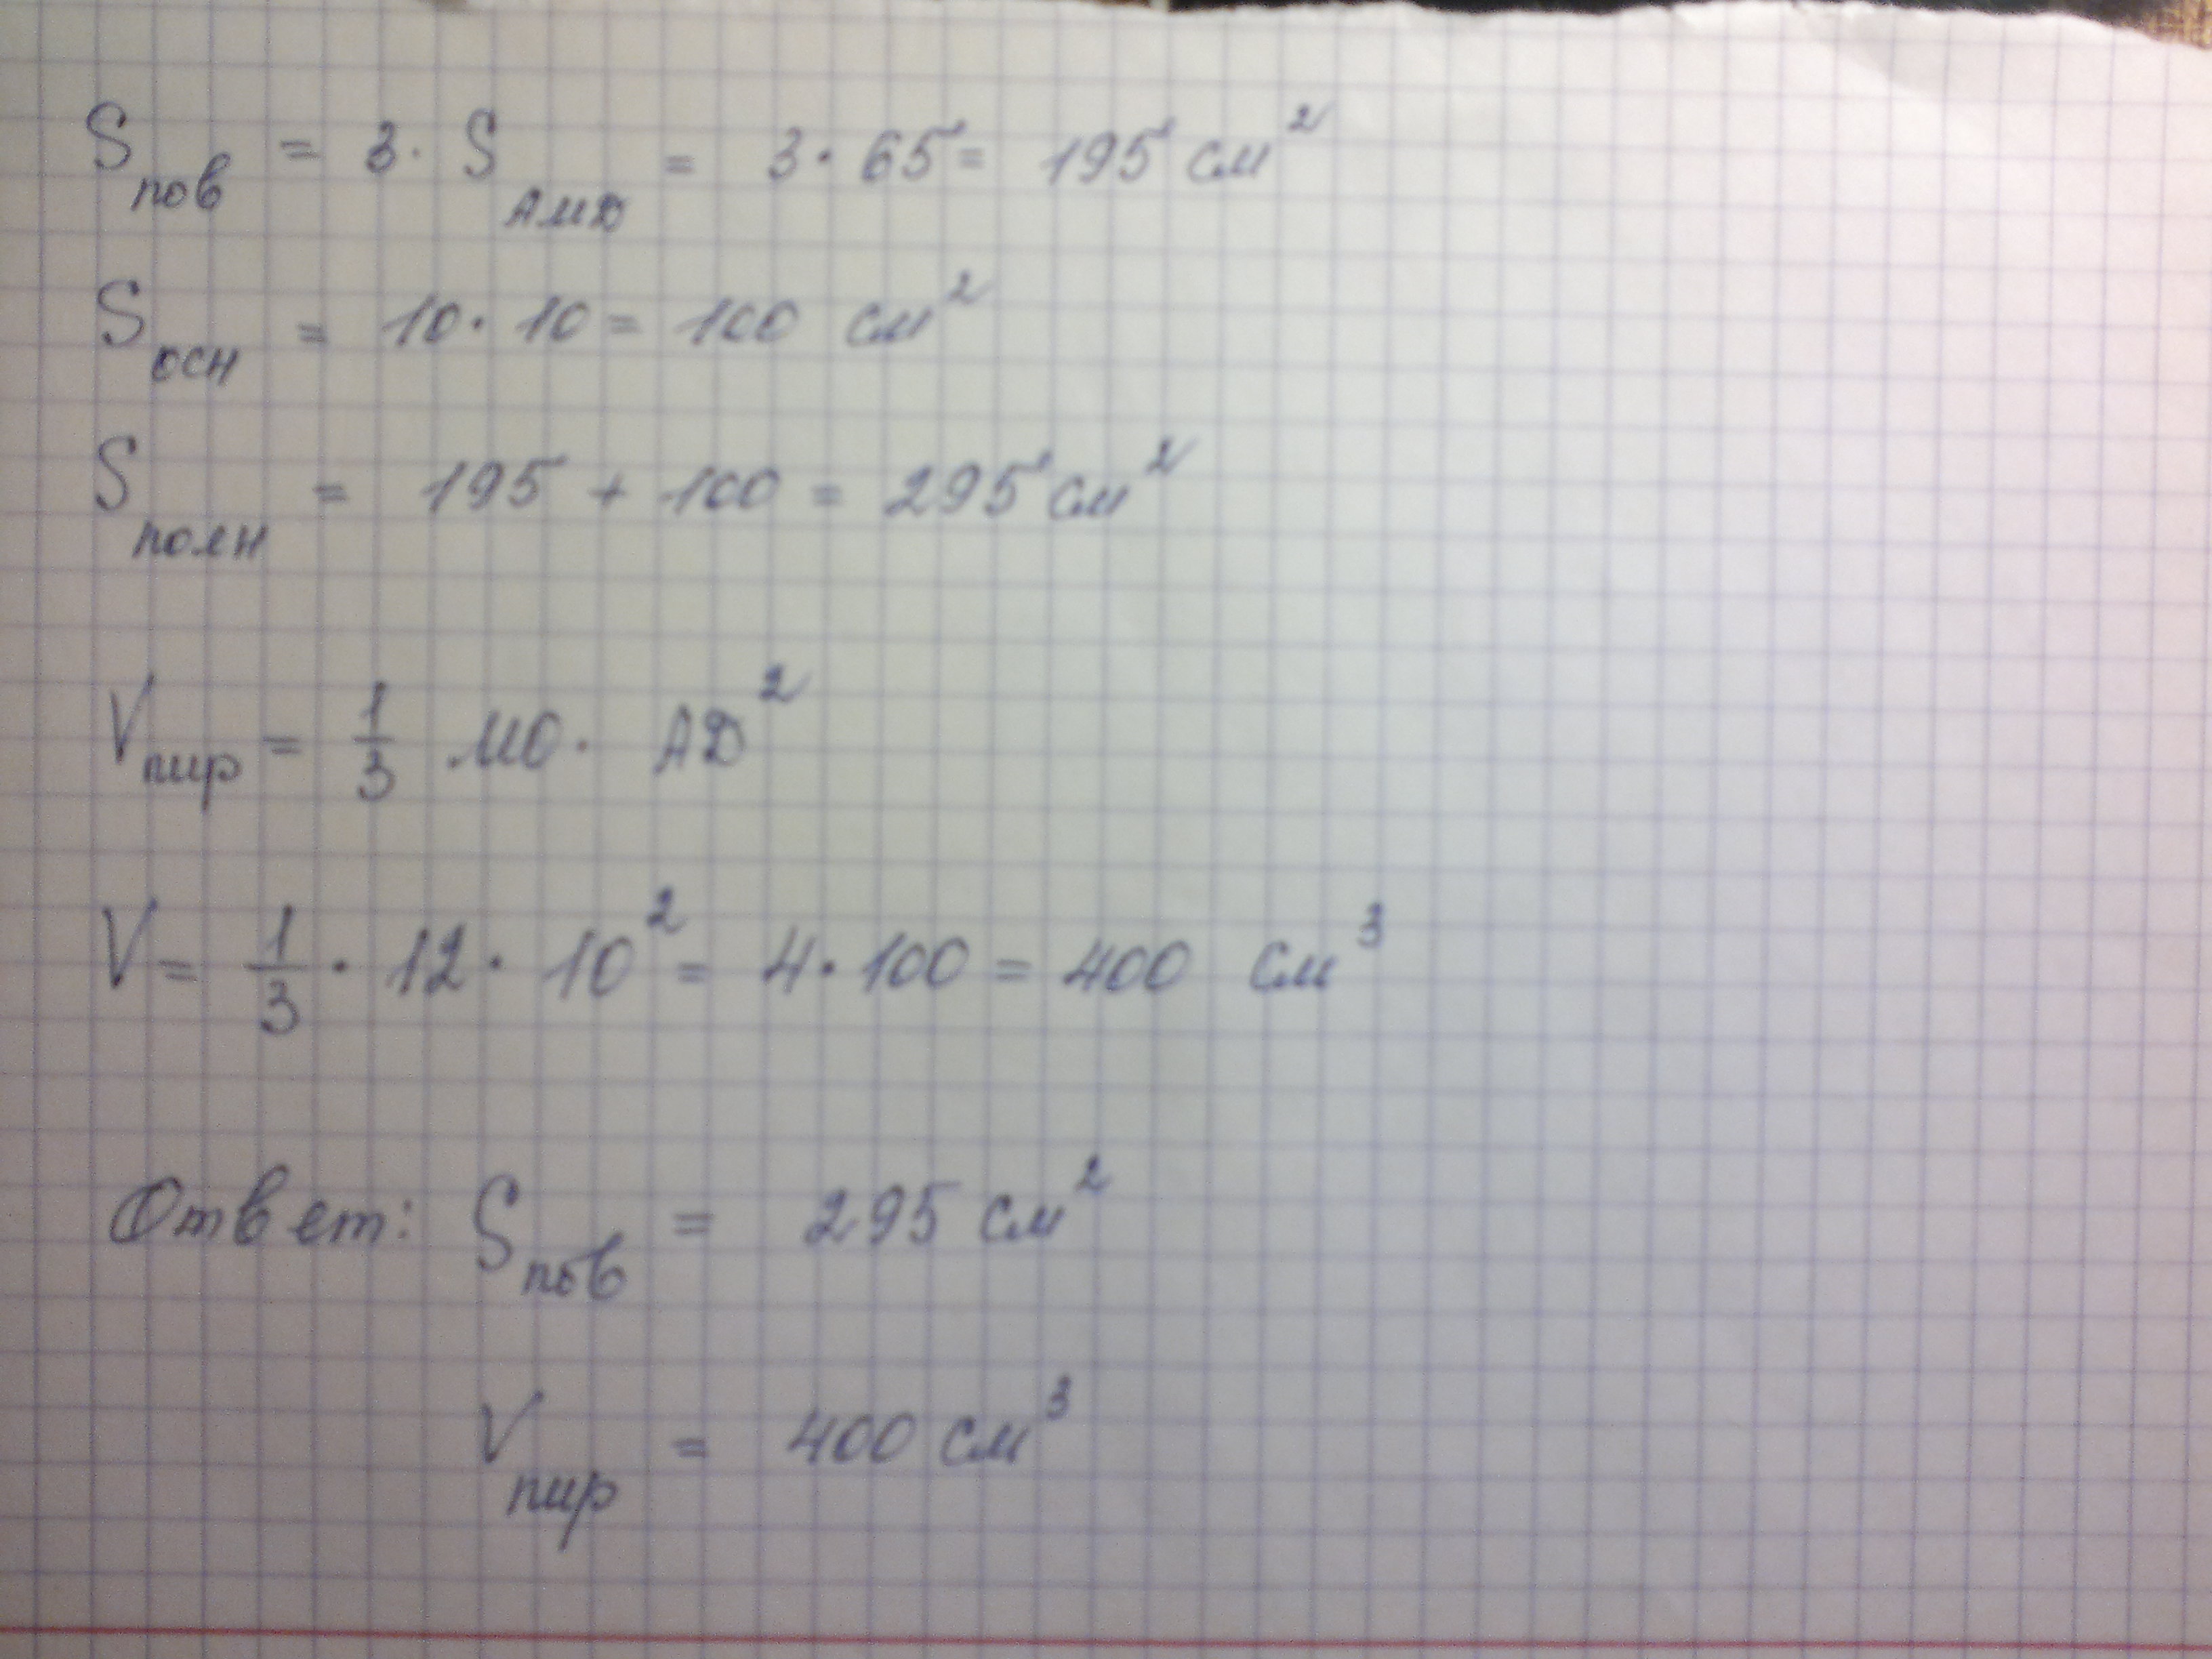 S пов = 3 · S АМД = 3 · 65 = 195 см²
S осн = 10 · 10 = 100 см²
S полн = 195 + 100 = 295 см²
V пир = 1/3 МО · АД²
V = 1/3 · 12 · 10² = 4 · 100 = 400 см³
Ответ: S пов = 295 см²
V пир = 400 см³